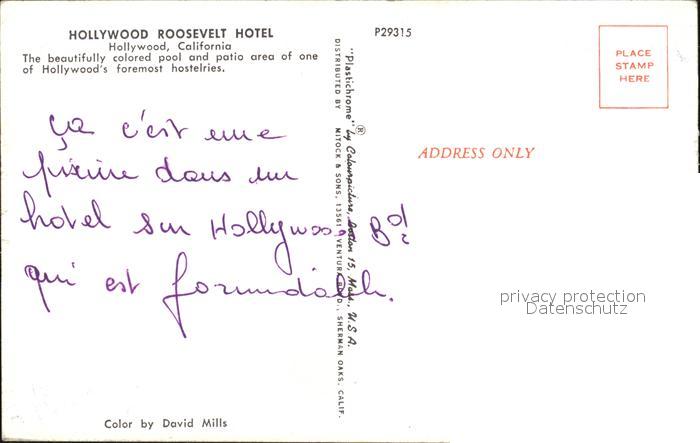 HOLLYWOOD ROOSEVELT HOTEL
Hollywood, California
The beautifully colored pool and patio area of one
of Hollywood's foremost hostelries.
P29315
PLACE
STAMP
HERE
ADDRESS ONLY
ça c'est une
piscine dans un
hotel sur Hollywood Bd
qui est formidable.
"Plastichrome"® by Colourpicture, Boston 15, Mass., U.S.A.
DISTRIBUTED BY MITOCK & SONS, 13561 VENTURA BLVD., SHERMAN OAKS, CALIF.
privacy protection
Datenschutz
Color by David Mills